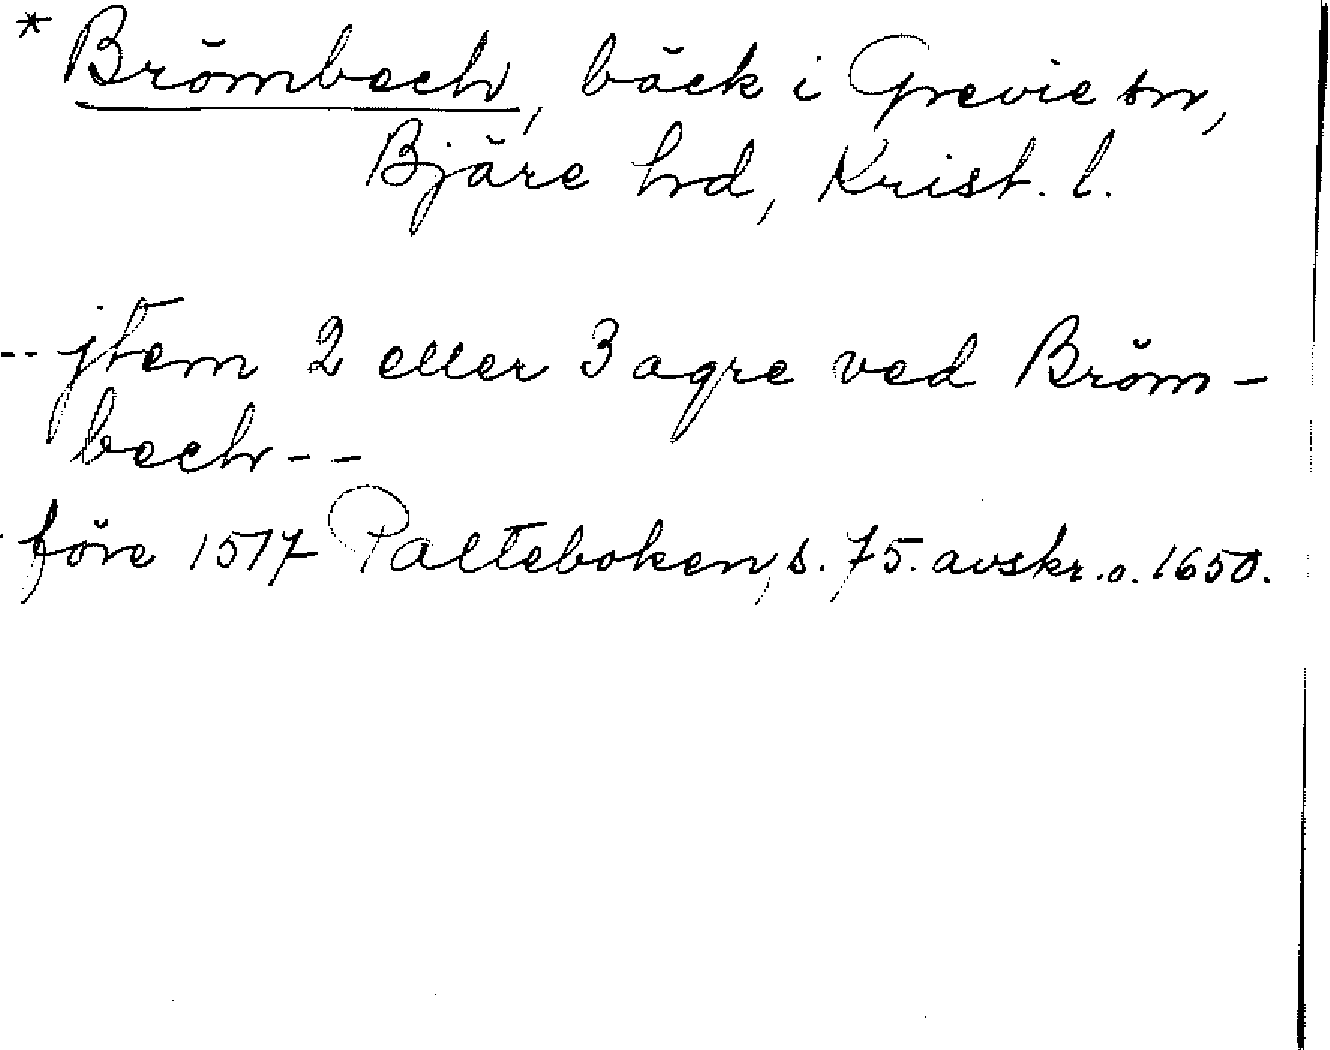 *Brömbech, bäck i Grevie sn,
Bjäre hd, Krist. l.
-- jtem 2 eller 3 agre ved Bröm-
bech --
före 1517 Palteboken, s. 75. avskr. o. 1650.